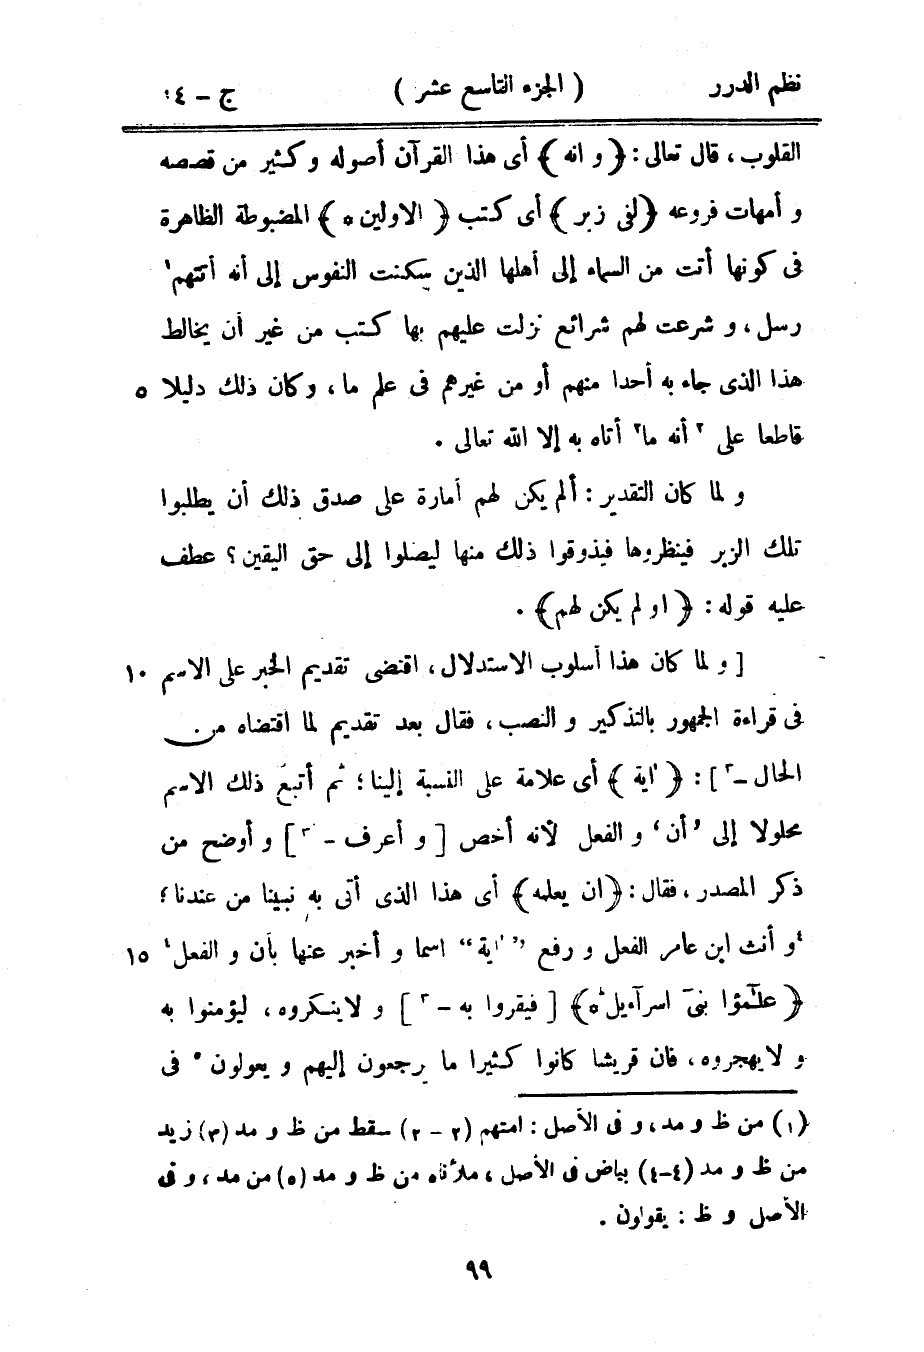 نظم الدرر ( الجزء التاسع عشر ) ج - ٤
القلوب ، قال تعالى : ﴿ و انه ﴾ أى هذا القرآن أصوله و كثير من قصصه
و أمهات فروعه ﴿ لفى زبر ﴾ أى كتب ﴿ الاولين ه ﴾ المضبوطة الظاهرة
فى كونها أتت من السماء إلى أهلها الذين سكنت النفوس إلى أنه أتتهم ١
رسل ، و شرعت لهم شرائع نزلت عليهم بها كتب من غير أن يخالط
هذا الذى جاء به أحدا منهم أو من غيرهم فى علم ما ، و كان ذلك دليلا ٥
قاطعا على ٢ أنه ما ٢ أتاه به إلا الله تعالى .
و لما كان التقدير : ألم يكن لهم أمارة على صدق ذلك أن يطلبوا
تلك الزبر فينظروها فيذوقوا ذلك منها ليصلوا إلى حق اليقين ؟ عطف
عليه قوله : ﴿ او لم يكن لهم ﴾ .
[ و لما كان هذا أسلوب الاستدلال ، اقتضى تقديم الخبر على الاسم ١٠
فى قراءة الجمهور بالتذكير و النصب ، فقال بعد تقديم لما اقتضاه من
الحال - ٣ ] : ﴿ اٰية ﴾ أى علامة على النسبة إلينا ؛ ثم أتبع ذلك الاسم
محلولا إلى ’ أن ‘ و الفعل لأنه أخص [ و أعرف - ٣ ] و أوضح من
ذكر المصدر ، فقال : ﴿ ان يعلمه ﴾ أى هذا الذى أتى به نبينا من عندنا ؛
٤ و أنث ابن عامر الفعل و رفع ” اٰية “ اسما و أخبر عنها بأن و الفعل ٤ ١٥
﴿ علمٰٓؤا بنىٓ اسرآءيل ه ﴾ [ فيقروا به - ٣ ] و لا ينكروه ، ليؤمنوا به
و لا يهجروه ، فان قريشا كانوا كثيرا ما يرجعون إليهم و يعولون ٥ فى
(١) من ظ و مد ، و فى الأصل : امتهم (٢ - ٢) سقط من ظ و مد (٣) زيد
من ظ و مد (٤-٤) بياض فى الأصل ، ملأناه من ظ و مد (٥) من مد ، و فى
الأصل و ظ : يقولون .
٩٩